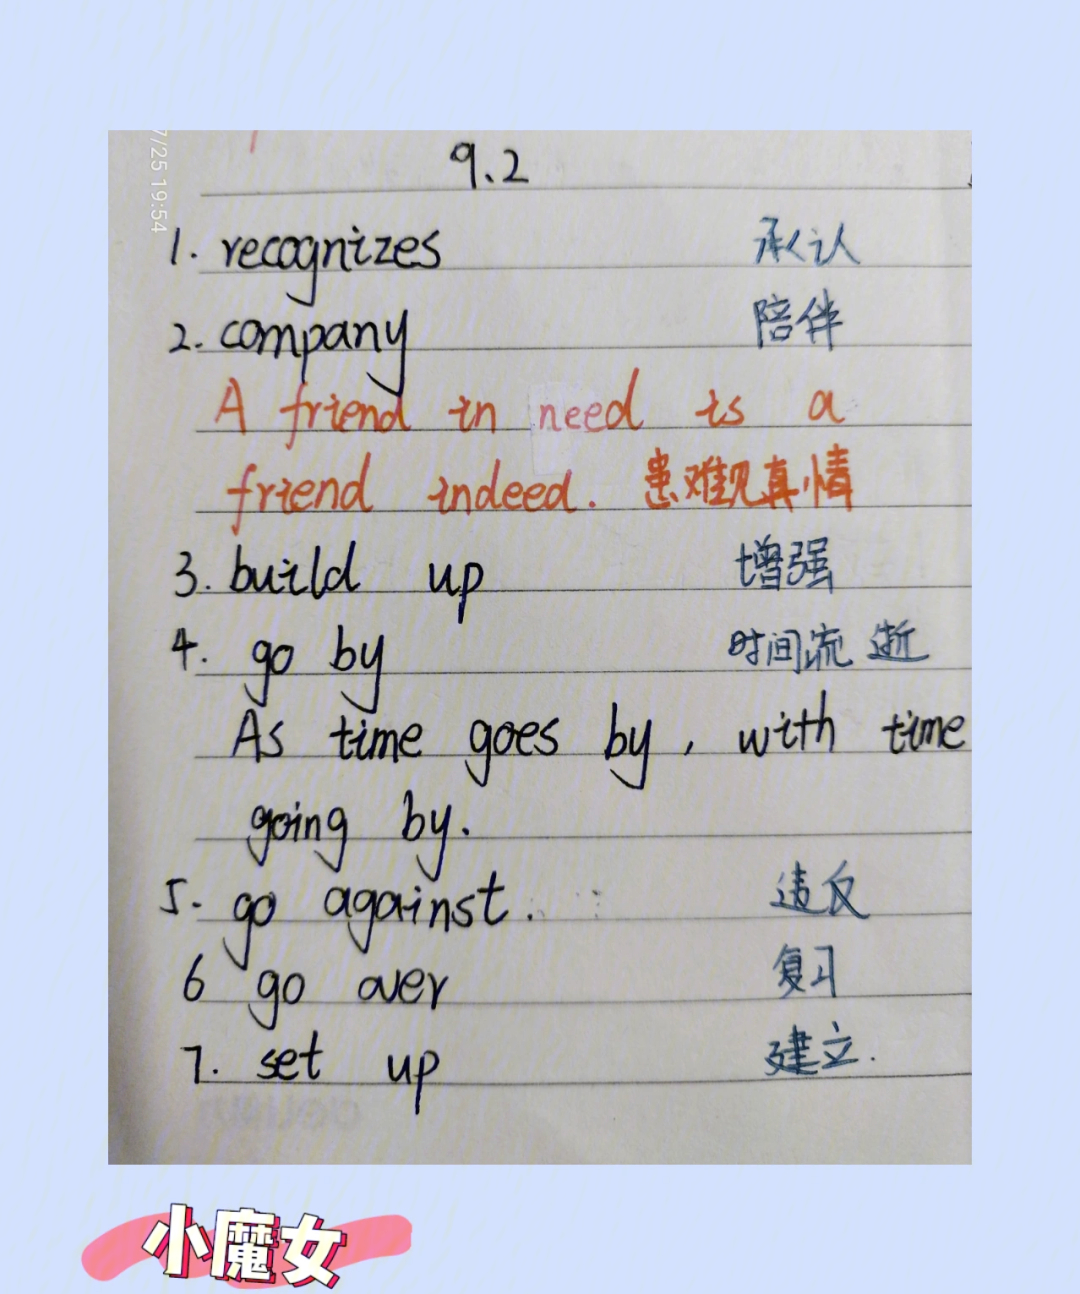 7/25 19:54
9.2
1. recognizes 承认
2. company 陪伴
A friend in need is a
friend indeed. 患难见真情
3. build up 增强
4. go by 时间流逝
As time goes by, with time
going by.
5. go against. 违反
6 go over 复习
7. set up 建立.
小魔女